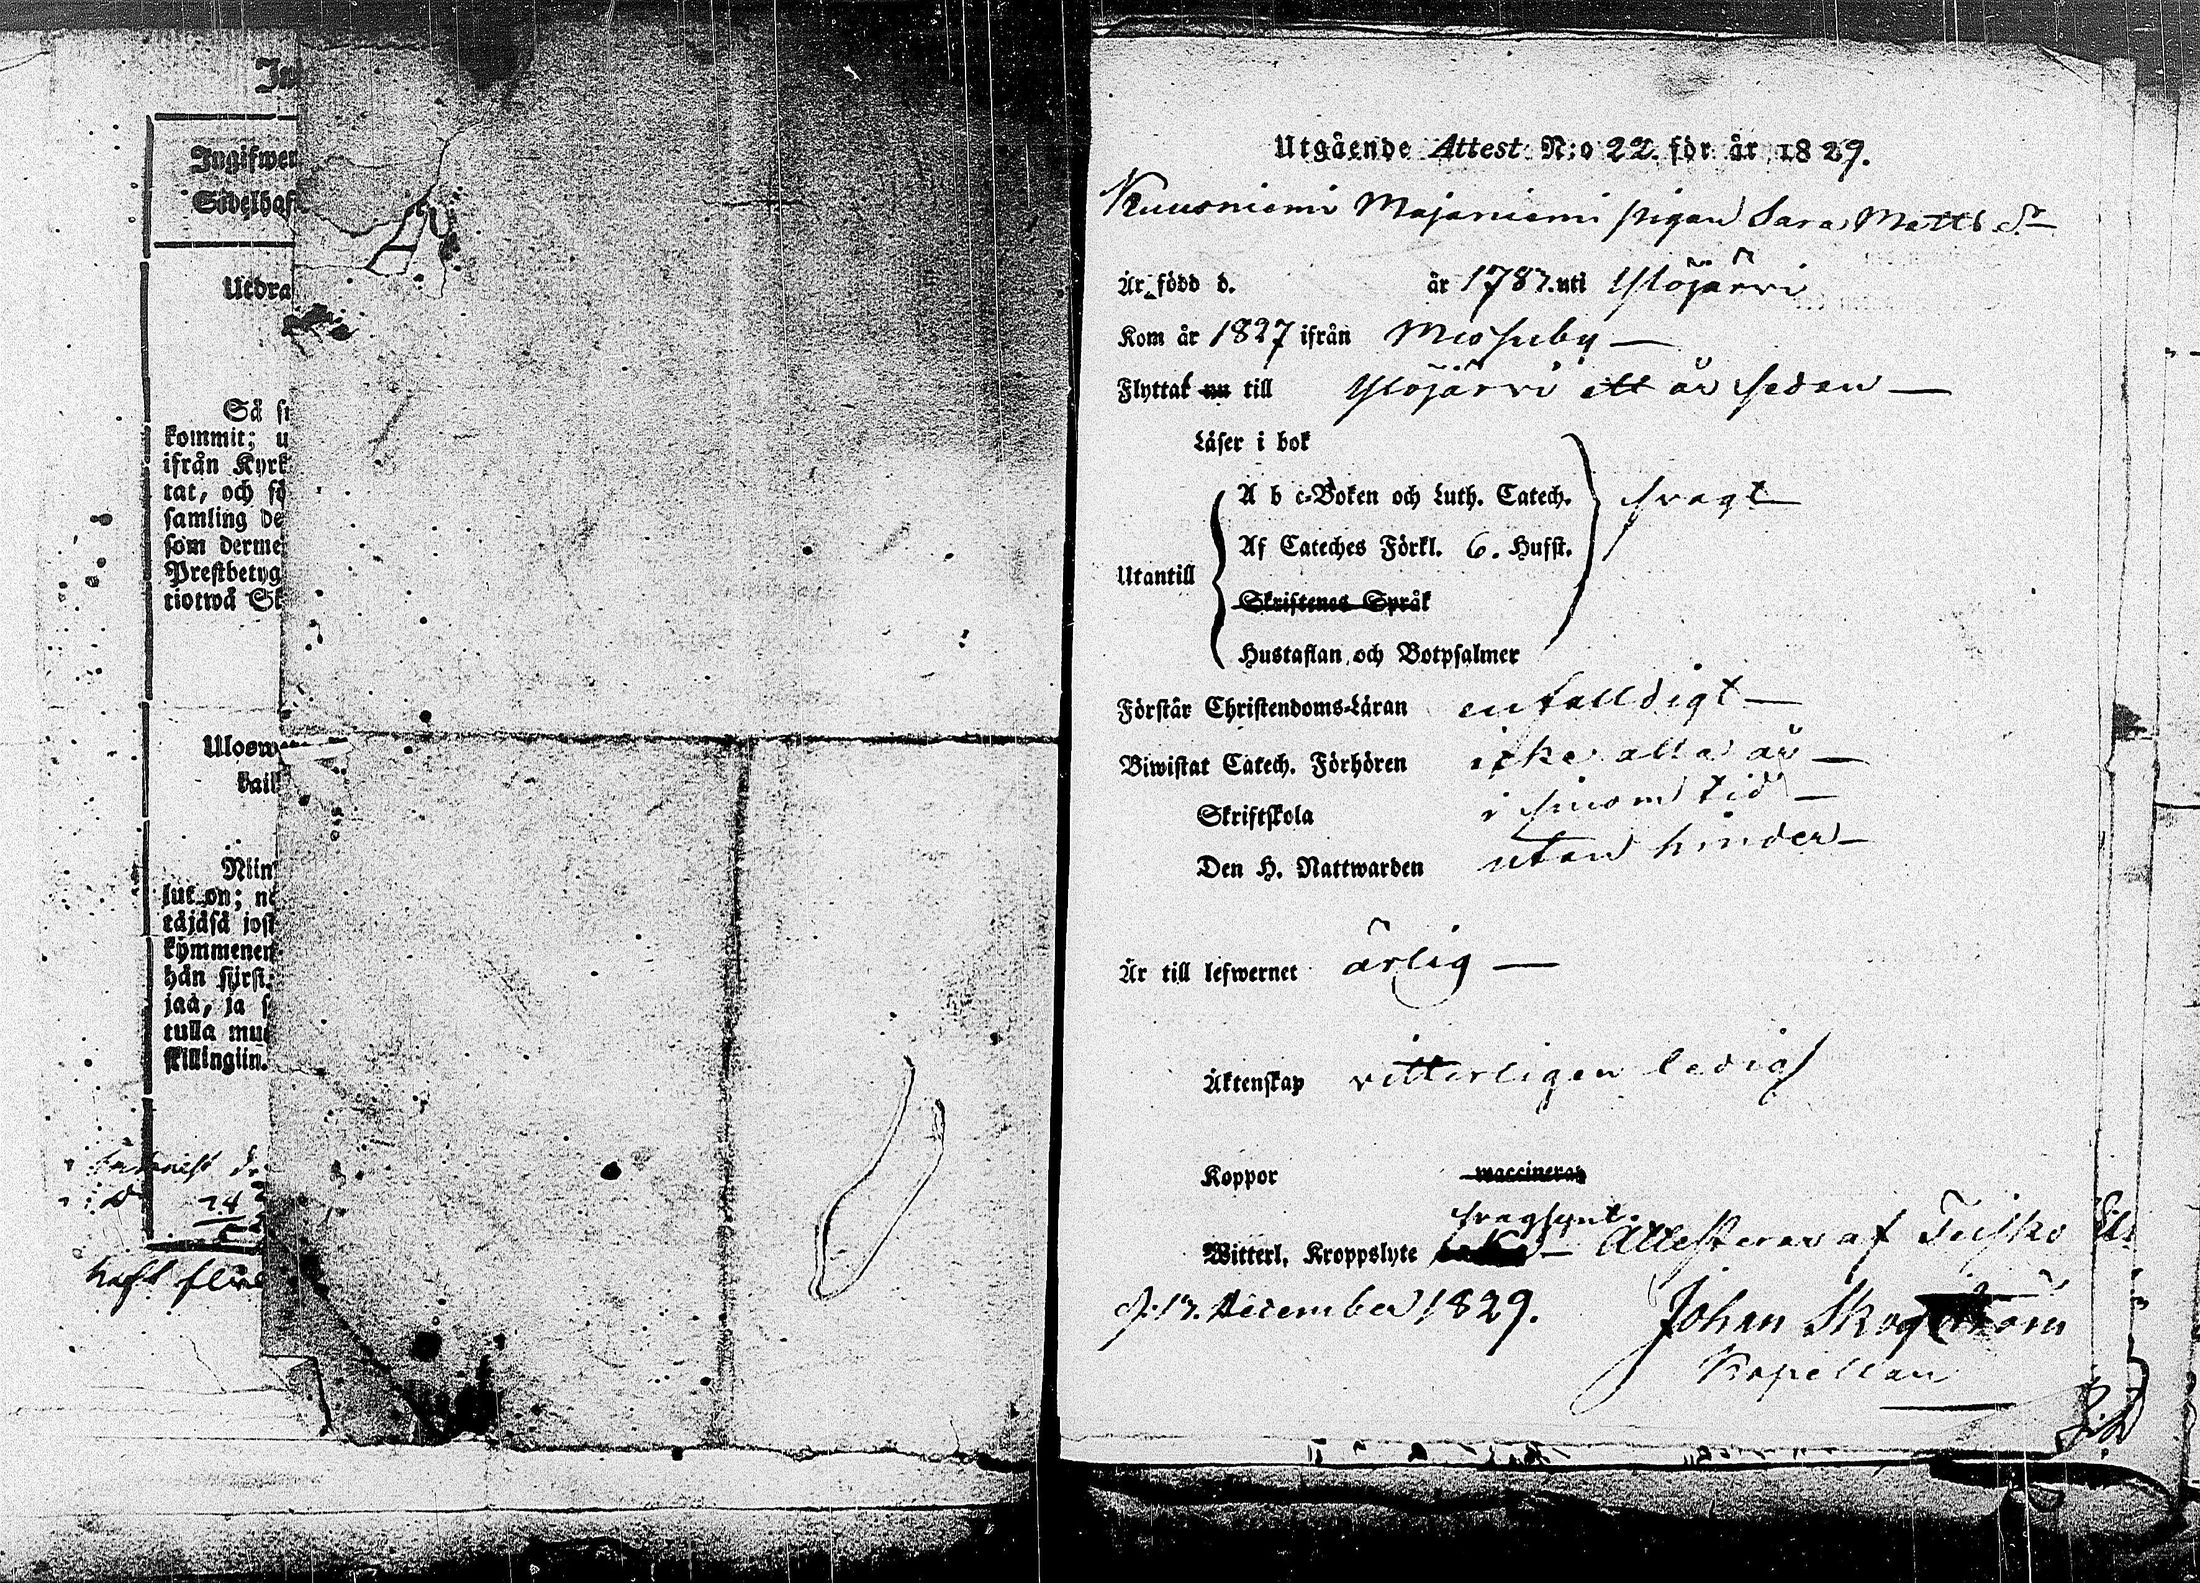 Ingifwer
Sidelhaf
Utdra
Så
kommit; u
ifrån Kyrk
tat, och fö
samling de
som derme
Prestbetyg
tiotwå Sk
Ulosw
kail
Niin
lut on; ne
täjäsä jost
kymmenen
hän siirst
jaa, ja s
tulla mu
skillingiin.
24
Utgående Attest N:o 22. för år 1829.
Kuusniemi Majaniemi pigan Sara Matts dr
Är född d. år 1787. uti Ylöjärvi
Kom år 1827 ifrån Messuby —
Flyttat nu till Ylöjärvi ett år sedan —
Läser i bok
A b c-Boken och Luth. Catech. svagt
Utantill
Af Cateches Förkl. 6. Hufst.
Skriftenes Språk
Hustaflan och Botpsalmer
Förstår Christendoms-Läran enfalldigt —
Biwistat Catech. Förhören icke alla år —
Skriftskola i sinom tid —
Den H. Nattwarden utan hinder —
Är till lefwernet ärlig —
Äktenskap vitterligen ledig
Koppor vaccinerad
svagsynt.
Witterl. Kroppslyte — Attesterar af Teisko
d. 17. December 1829. Johan Skogström
Kapellan